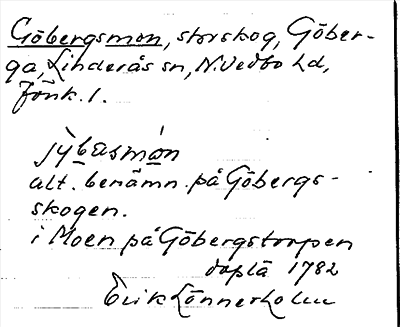 Göbergsmon, storskog, Göber-
ga, Linderås sn, N. Vedbo hd,
Jönk. l.
jýbasmòn
alt. benämn. på Göbergs-
skogen.
i Moen på Göbergstorpen
döptä 1782
Erik Lönnerholm